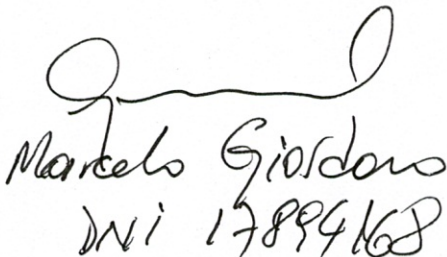 Marcelo Giordano
DNI 17894168